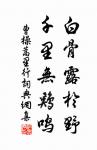 白骨露於野
千里無鷄鳴
曹操蒿里行詞典網集